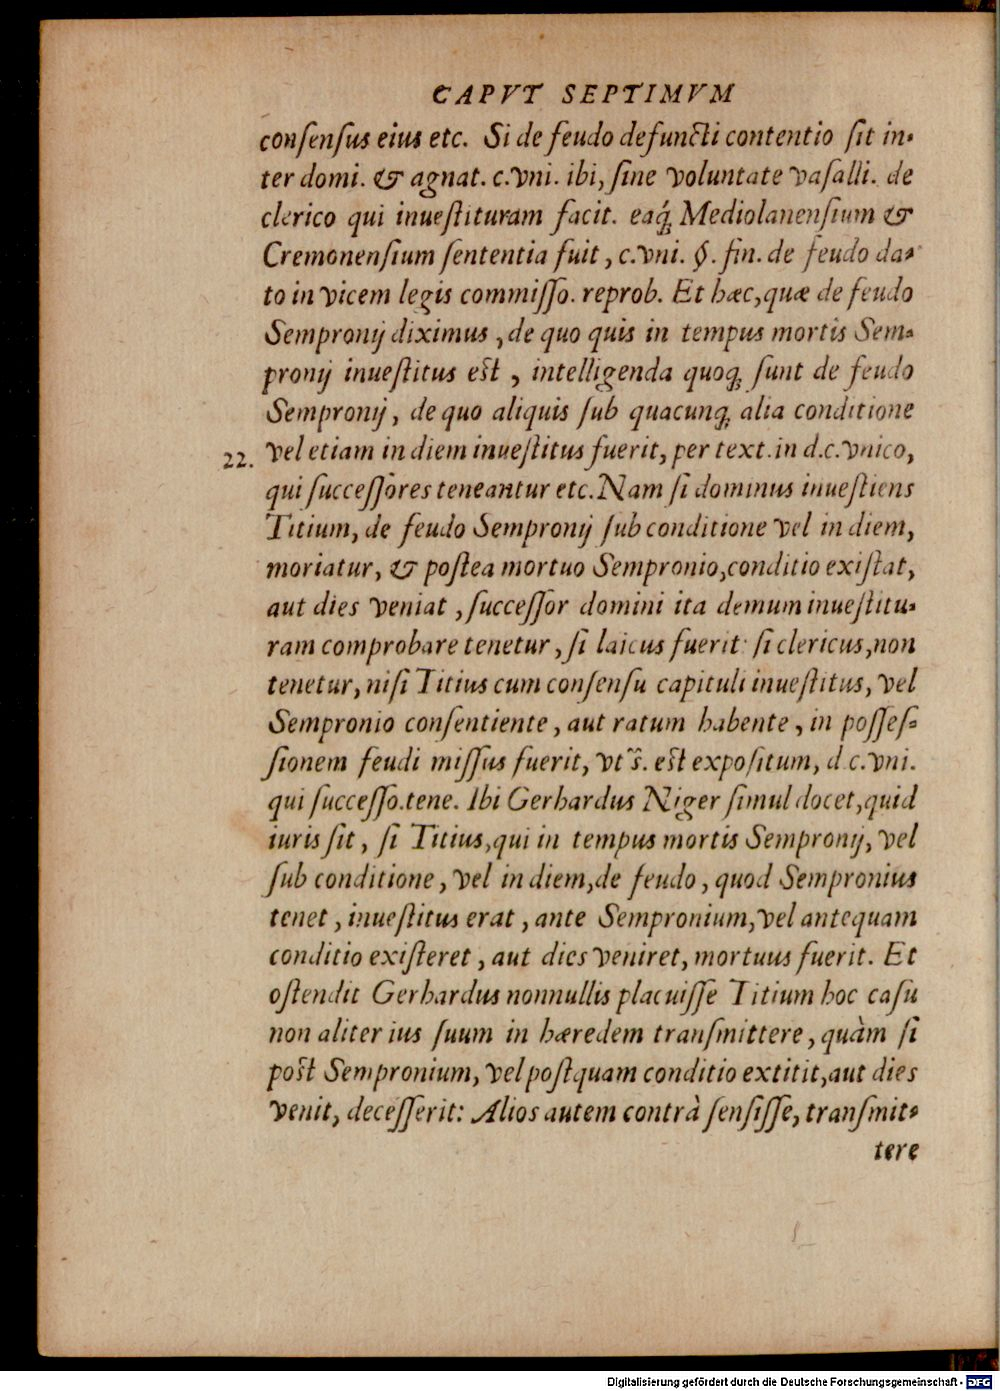 CAPVT SEPTIMVM
conſenſus eius etc. Si de feudo defuncti contentio ſit in-
ter domi. & agnat. c.vni. ibi, ſine voluntate vaſalli. de
clerico qui inueſtituram facit. eaq́ꝫ Mediolanenſium &
Cremonenſium ſententia fuit, c.vni. §. fin. de feudo da-
to in vicem legis commiſſo. reprob. Et hæc, quæ de feudo
Sempronij diximus, de quo quis in tempus mortis Sem-
pronij inueſtitus eſt, intelligenda quoqꝫ ſunt de feudo
Sempronij, de quo aliquis ſub quacunqꝫ alia conditione
22. vel etiam in diem inueſtitus fuerit, per text. in d.c.vnico,
qui ſucceſſores teneantur etc. Nam ſi dominus inueſtiens
Titium, de feudo Sempronij ſub conditione vel in diem,
moriatur, & poſtea mortuo Sempronio, conditio exiſtat,
aut dies veniat, ſucceſſor domini ita demum inueſtitu-
ram comprobare tenetur, ſi laicus fuerit: ſi clericus, non
tenetur, niſi Titius cum conſenſu capituli inueſtitus, vel
Sempronio conſentiente, aut ratum habente, in poſſeſ-
ſionem feudi miſſus fuerit, vt s̃. eſt expoſitum, d.c.vni.
qui ſucceſſo.tene. Ibi Gerhardus Niger ſimul docet, quid
iuris ſit, ſi Titius, qui in tempus mortis Sempronij, vel
ſub conditione, vel in diem, de feudo, quod Sempronius
tenet, inueſtitus erat, ante Sempronium, vel antequam
conditio exiſteret, aut dies veniret, mortuus fuerit. Et
oſtendit Gerhardus nonnullis placuiſſe Titium hoc caſu
non aliter ius ſuum in hæredem tranſmittere, quàm ſi
poſt Sempronium, vel poſtquam conditio extitit, aut dies
venit, deceſſerit: Alios autem contrà ſenſiſſe, tranſmit-
tere
Digitalisierung gefördert durch die Deutsche Forschungsgemeinschaft - DFG